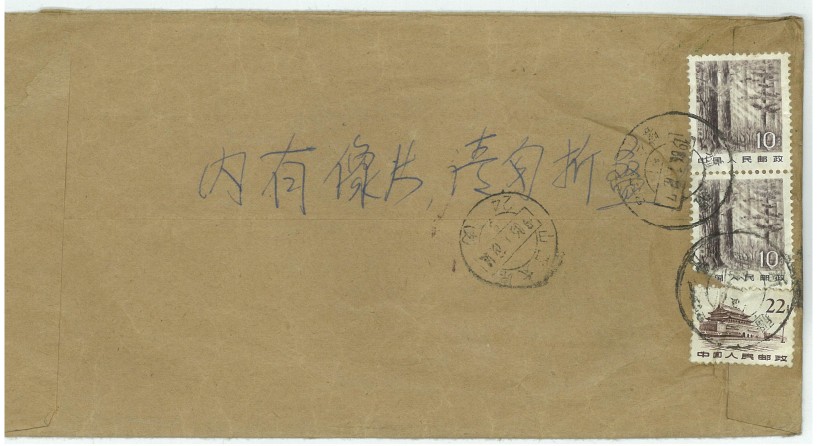 内有像片，请勿折叠
10
中国人民邮政
10
中国人民邮政
22
中国人民邮政